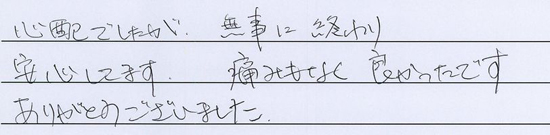 心配でしたが、無事に終わり
安心してます。痛みもなく良かったです
ありがとうございました。